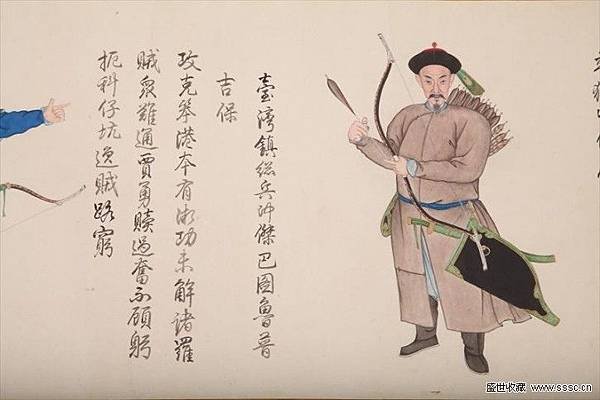 臺湾鎮総兵冲傑巴圖魯普
吉保
攻克笨港本有微功未解諸羅
賊衆難通賈勇贖過奮不顧躬
扼科仔坑逸賊路窮
盛世收藏 www.sssc.cn